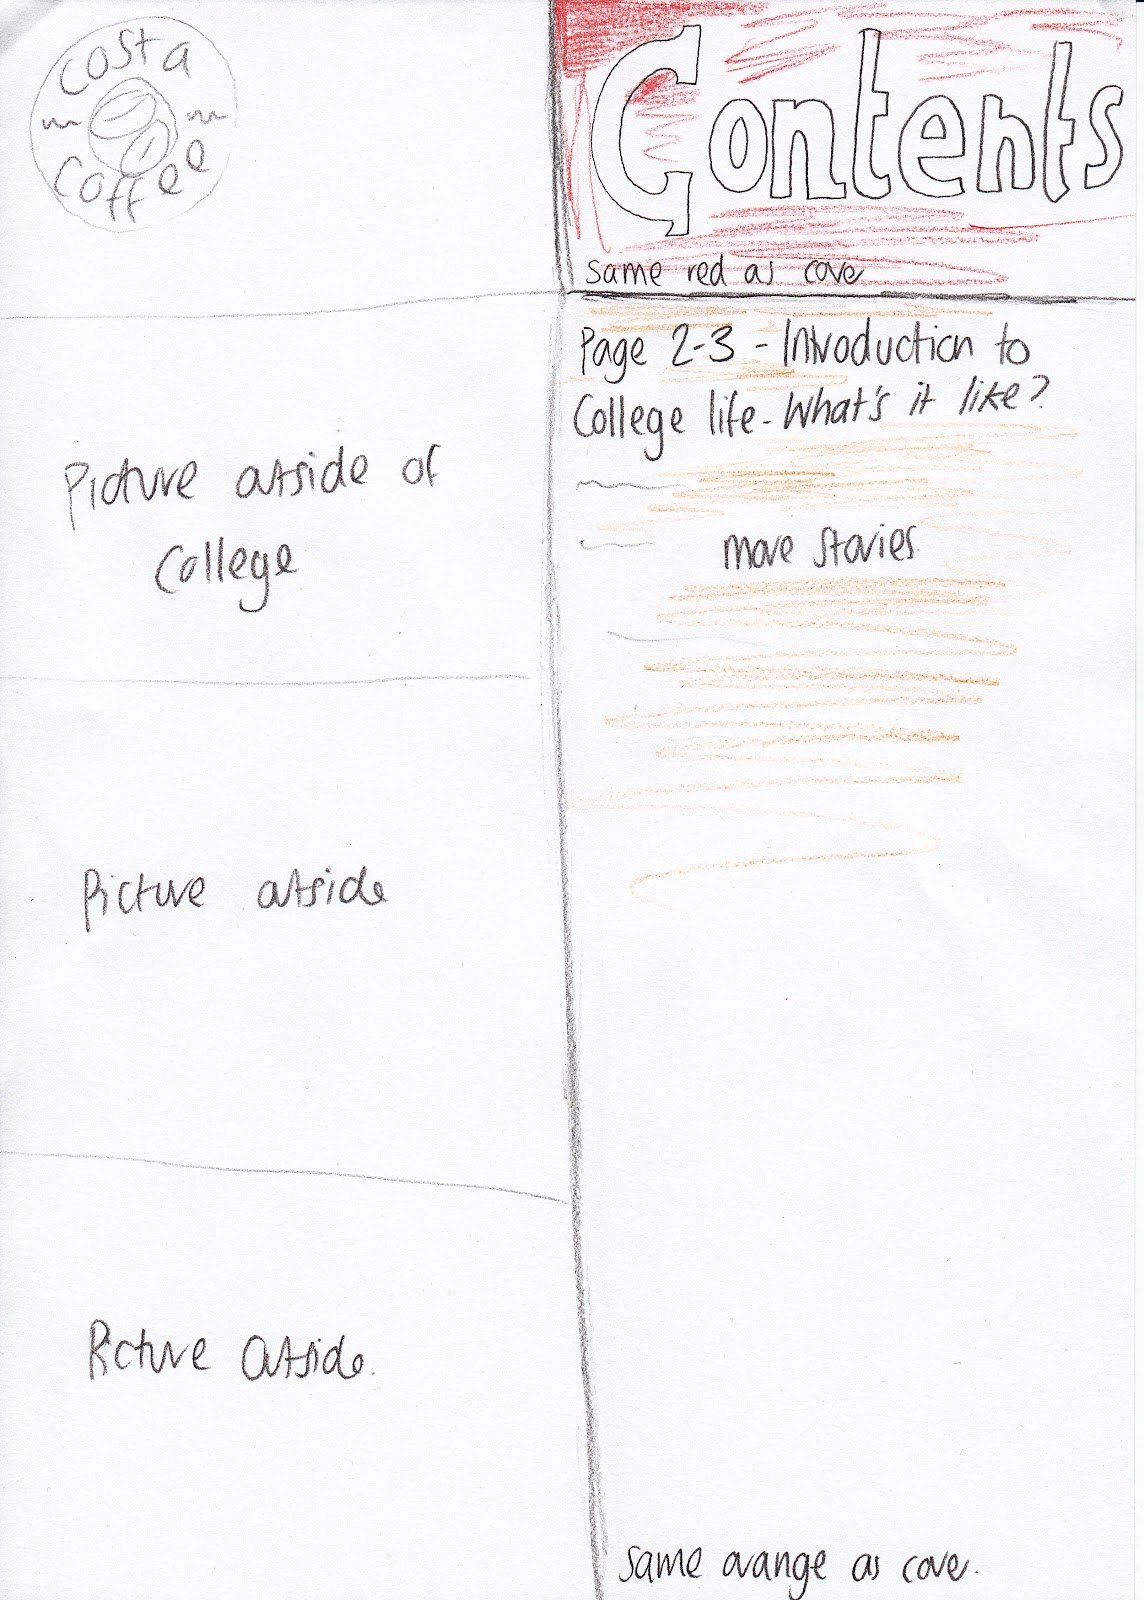 Costa
Coffee
Contents
same red as cove
Page 2-3 - Introduction to
College life - What's it like?
more stories.
Picture outside of
College
Picture outside
Picture outside.
same orange as cove.